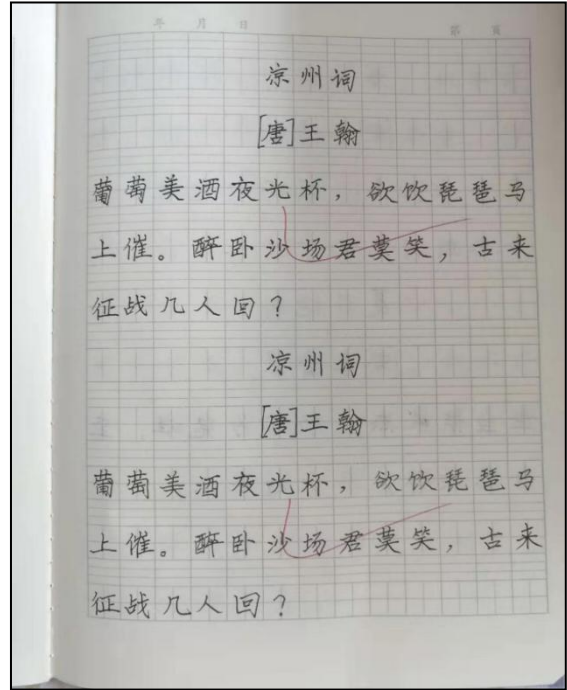 年 月 日 第 页
凉州词
[唐]王翰
葡萄美酒夜光杯，欲饮琵琶马
上催。醉卧沙场君莫笑，古来
征战几人回？
凉州词
[唐]王翰
葡萄美酒夜光杯，欲饮琵琶马
上催。醉卧沙场君莫笑，古来
征战几人回？